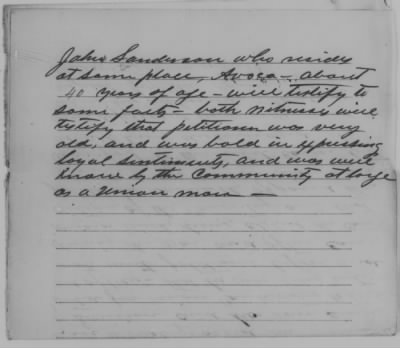 John Sanderson who resides
at same place, Avoca - about
40 years of age - will testify to
same facts - both witnesses will
testify that petitioner was very
old, and was bold in expressing
loyal sentiments, and was well
know by the Community at large
as a Union man -